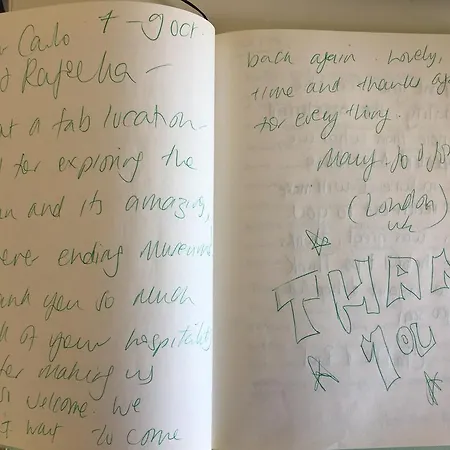 Carlo 7-9 Oct.
Rafaela -
at a fab location
for exploring the
and its amazing,
ere ending Museums
ank you so much
of your hospitality
for making us
welcome. We
t wait to come
back again. Lovely,
time and thanks again
for everything.
Mary, Jo & Jo
(London)
UK
THAN
YOU